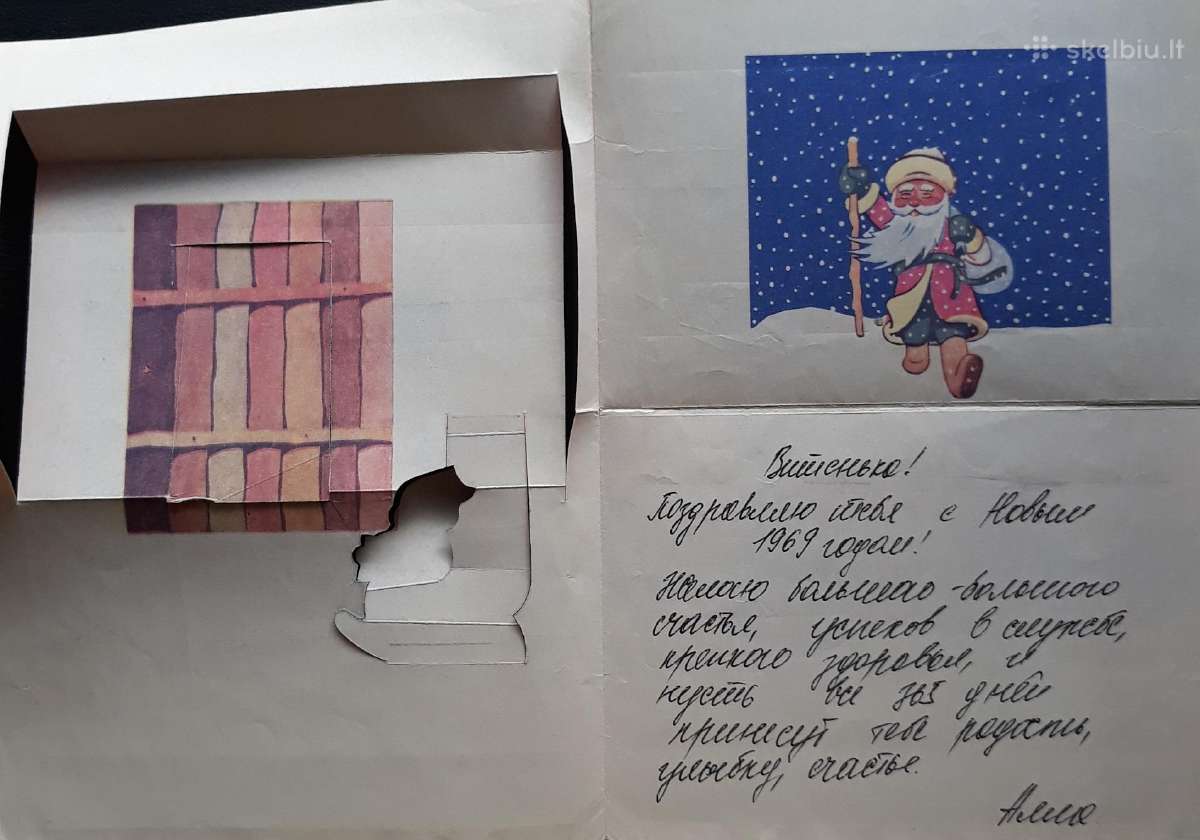 skelbiu.lt
Витенька!
Поздравляю тебя с Новым
1969 годом!
Желаю большого-большого
счастья, успехов в службе,
крепкого здоровья, и
пусть все 365 дней
принесут тебе радость,
улыбку, счастье.
Алла